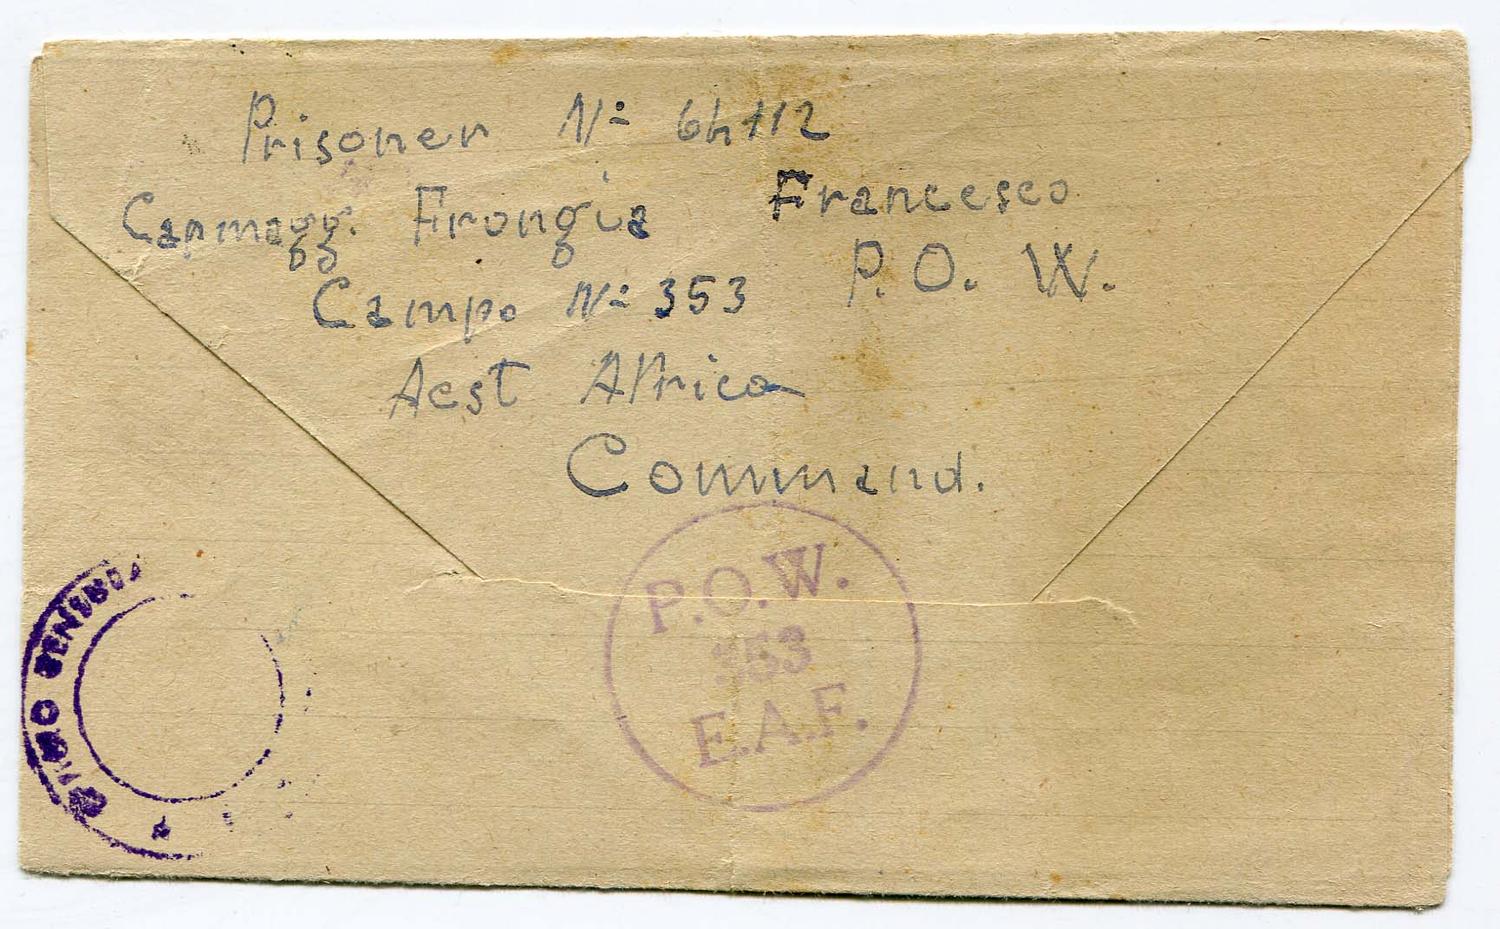 Prisoner N:
Capmagg. Frongia Francesco
Campo N: 353 P. O. W.
Aest Africa
Command.
P.O.W.
353
E.A.F.